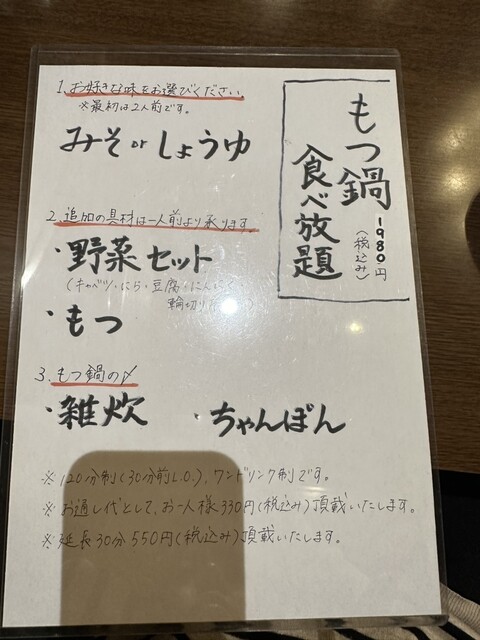 もつ鍋
食べ放題
1980円
(税込み)
1. お好きな味をお選びください
※最初は2人前です。
みそ or しょうゆ
2. 追加の具材は一人前より承ります。
・野菜セット
(キャベツ・にら・豆腐・にんにく・
輪切り
・もつ
3. もつ鍋の〆
・雑炊 ・ちゃんぽん
※120分制(30分前L.O.), ワンドリンク制です。
※お通し代として、お一人様330円(税込み)頂戴いたします。
※延長30分550円(税込み)頂戴いたします。